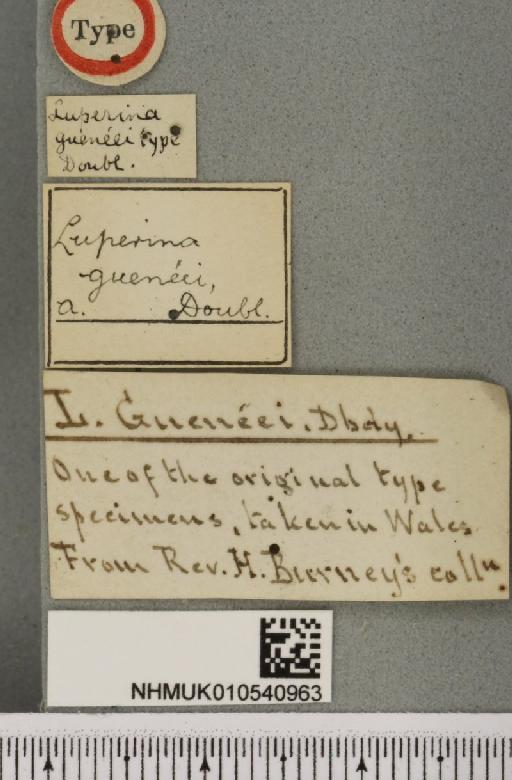 Type
Luperina
guenéei type
Doubl.
Luperina
guenéei,
a. Doubl.
L. Guenéei. Dbdy.
One of the original type
specimens, taken in Wales
From Rev. H. Burney's colln.
NHMUK010540963